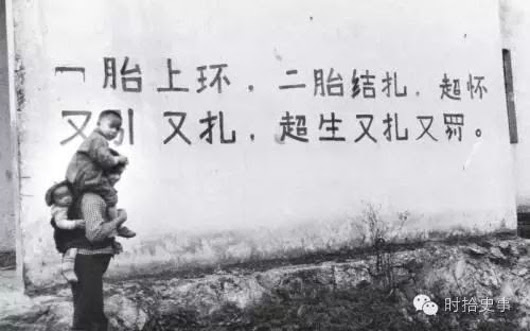 一胎上环，二胎结扎，超怀
又引又扎，超生又扎又罚。
时拾史事